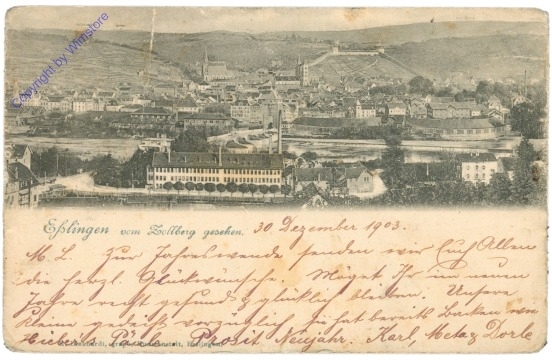 Copyright by Winstore
Eßlingen vom Zollberg gesehen.
30 Dezember 1903.
M. L. Zur Jahreswende senden wir Euch Allen
die herzl. Glückwünsche. Möget Ihr im neuen
Jahre recht gesund & glücklich bleiben. Unsere
Kleine gedeiht vorzüglich, sie hat bereits Backen von
Prosit Neujahr. Karl, Dorle